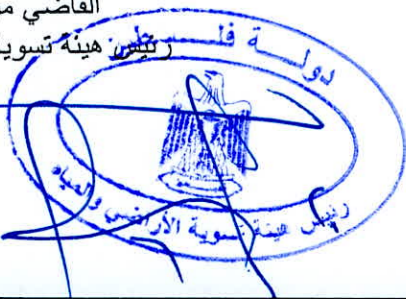 القاضي
رئيس هيئة تسوية
دولة فلسطين
رئيس هيئة تسوية الأراضي والمياه